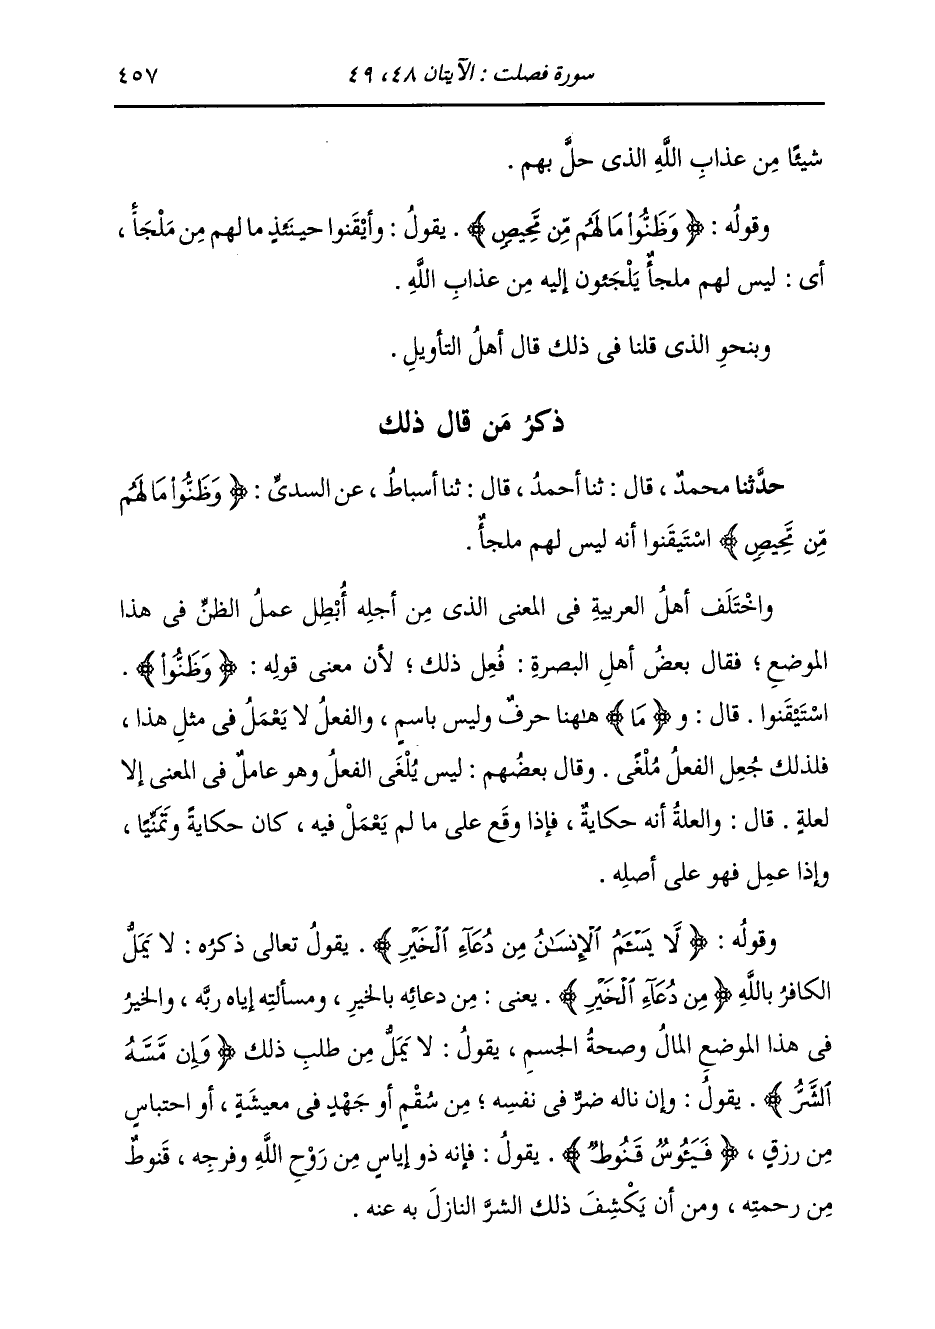 سورة فصلت : الآيتان ٤٨، ٤٩ ٤٥٧
شيئًا مِن عذابِ اللَّهِ الذى حلَّ بهم .
وقولُه : ﴿ وَظَنُّواْ مَا لَهُم مِّن مَّحِيصٍ ﴾ . يقولُ : وأيْقَنوا حينَئذٍ ما لهم مِن مَلْجَأً ،
أى : ليس لهم ملجأٌ يَلْجَئون إليه مِن عذابِ اللَّهِ .
وبنحوِ الذى قلنا فى ذلك قال أهلُ التأويلِ .
ذكرُ مَن قال ذلك
حدَّثنا محمدٌ ، قال : ثنا أحمدُ ، قال : ثنا أسباطُ ، عن السدىِّ : ﴿ وَظَنُّواْ مَا لَهُم
مِّن مَّحِيصٍ ﴾ اسْتَيقَنوا أنه ليس لهم ملجأٌ .
واخْتَلَف أهلُ العربيةِ فى المعنى الذى مِن أجلِه أُبْطِل عملُ الظنِّ فى هذا
الموضعِ ؛ فقال بعضُ أهلِ البصرةِ : فُعِل ذلك ؛ لأن معنى قولِه : ﴿ وَظَنُّواْ ﴾ .
اسْتَيْقَنوا . قال : و ﴿ مَا ﴾ هٰهنا حرفٌ وليس باسمٍ ، والفعلُ لا يَعْمَلُ فى مثلِ هذا ،
فلذلك جُعِل الفعلُ مُلْغًى . وقال بعضُهم : ليس يُلْغَى الفعلُ وهو عاملٌ فى المعنى إلا
لعلةٍ . قال : والعلةُ أنه حكايةٌ ، فإذا وقَع على ما لم يَعْمَلْ فيه ، كان حكايةً وتَمَنِّيًا ،
وإذا عمِل فهو على أصلِه .
وقولُه : ﴿ لَّا يَسْـَٔمُ ٱلْإِنسَـٰنُ مِن دُعَآءِ ٱلْخَيْرِ ﴾ . يقولُ تعالى ذكرُه : لا يَمَلُّ
الكافرُ باللَّهِ ﴿ مِن دُعَآءِ ٱلْخَيْرِ ﴾ . يعنى : مِن دعائِه بالخيرِ ، ومسألتِه إياه ربَّه ، والخيرُ
فى هذا الموضعِ المالُ وصحةُ الجسمِ ، يقولُ : لا يَمَلُّ مِن طلبِ ذلك ﴿ وَإِن مَّسَّهُ
ٱلشَّرُّ ﴾ . يقولُ : وإن ناله ضرٌّ فى نفسِه ؛ مِن سُقْمٍ أو جَهْدٍ فى معيشَةٍ ، أو احتباسٍ
مِن رزقٍ ، ﴿ فَيَـُٔوسٌ قَنُوطٌ ﴾ . يقولُ : فإنه ذو إياسٍ مِن رَوْحِ اللَّهِ وفرجِه ، قَنوطٌ
مِن رحمتِه ، ومن أن يَكْشِفَ ذلك الشرَّ النازلَ به عنه .